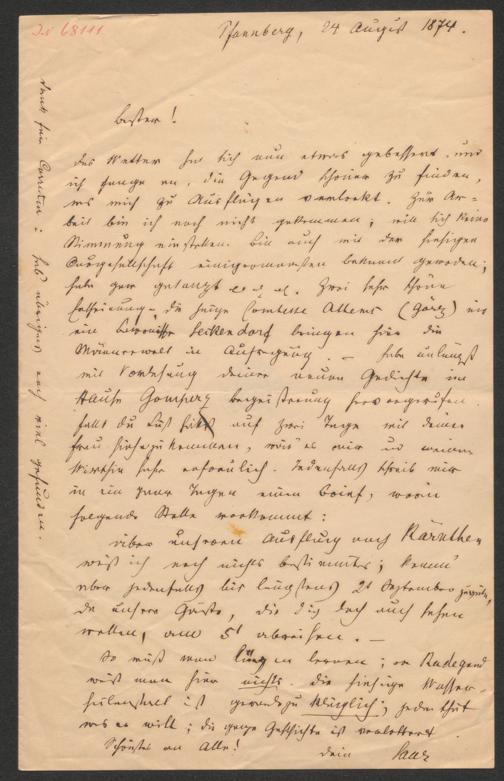 I.N. 68111
Pfannberg, 24 August 1874.
Bester!
Das Wetter hat sich nun etwas gebessert, und
ich fange an, die Gegend schöner zu finden,
was mich zu Ausflügen verlockt. Zur Ar-
beit bin ich noch nicht gekommen; will sich keine
Stimmung einstellen. Bin auch mit der hiesigen
Curgesellschaft einigermassen bekannt geworden;
habe gar getanzt etc. etc. Zwei sehr schöne
Erscheinungen die junge Comtesse Attems (Görz) und
ein Baronesse Seckendorf bringen hier die
Männerwelt in Aufregung. — Habe unlängst
mit Vorlesung deiner neuen Gedichte im
Hause Gomperz Begeisterung hervorgerufen.
Falls du Lust hättest auf zwei Tage mit deiner
Frau hieherzukommen, wäre es mir und meinen
Wirthen sehr erfreulich. Jedenfalls schreib mir
in ein paar Tagen einen Brief, worin
folgende Stelle vorkommt:
Über unseren Ausflug nach Kärnthen
weiß ich noch nichts bestimmtes; komm'
aber jedenfalls bis längstens 2t September zurück,
da unsere Gäste, die dich doch auch sehen
wollen, am 5t abreisen. —
So muß man lügen lernen; in Radegund
weiß man hier nichts. Die hiesige Wasser-
heilanstalt ist geradezu kläglich; jeder thut
was er will; die ganze Geschichte ist verlottert
Schönstes an Alle!
Dein Saar
Dank für Correctur: hab übrigens noch viel gefunden.